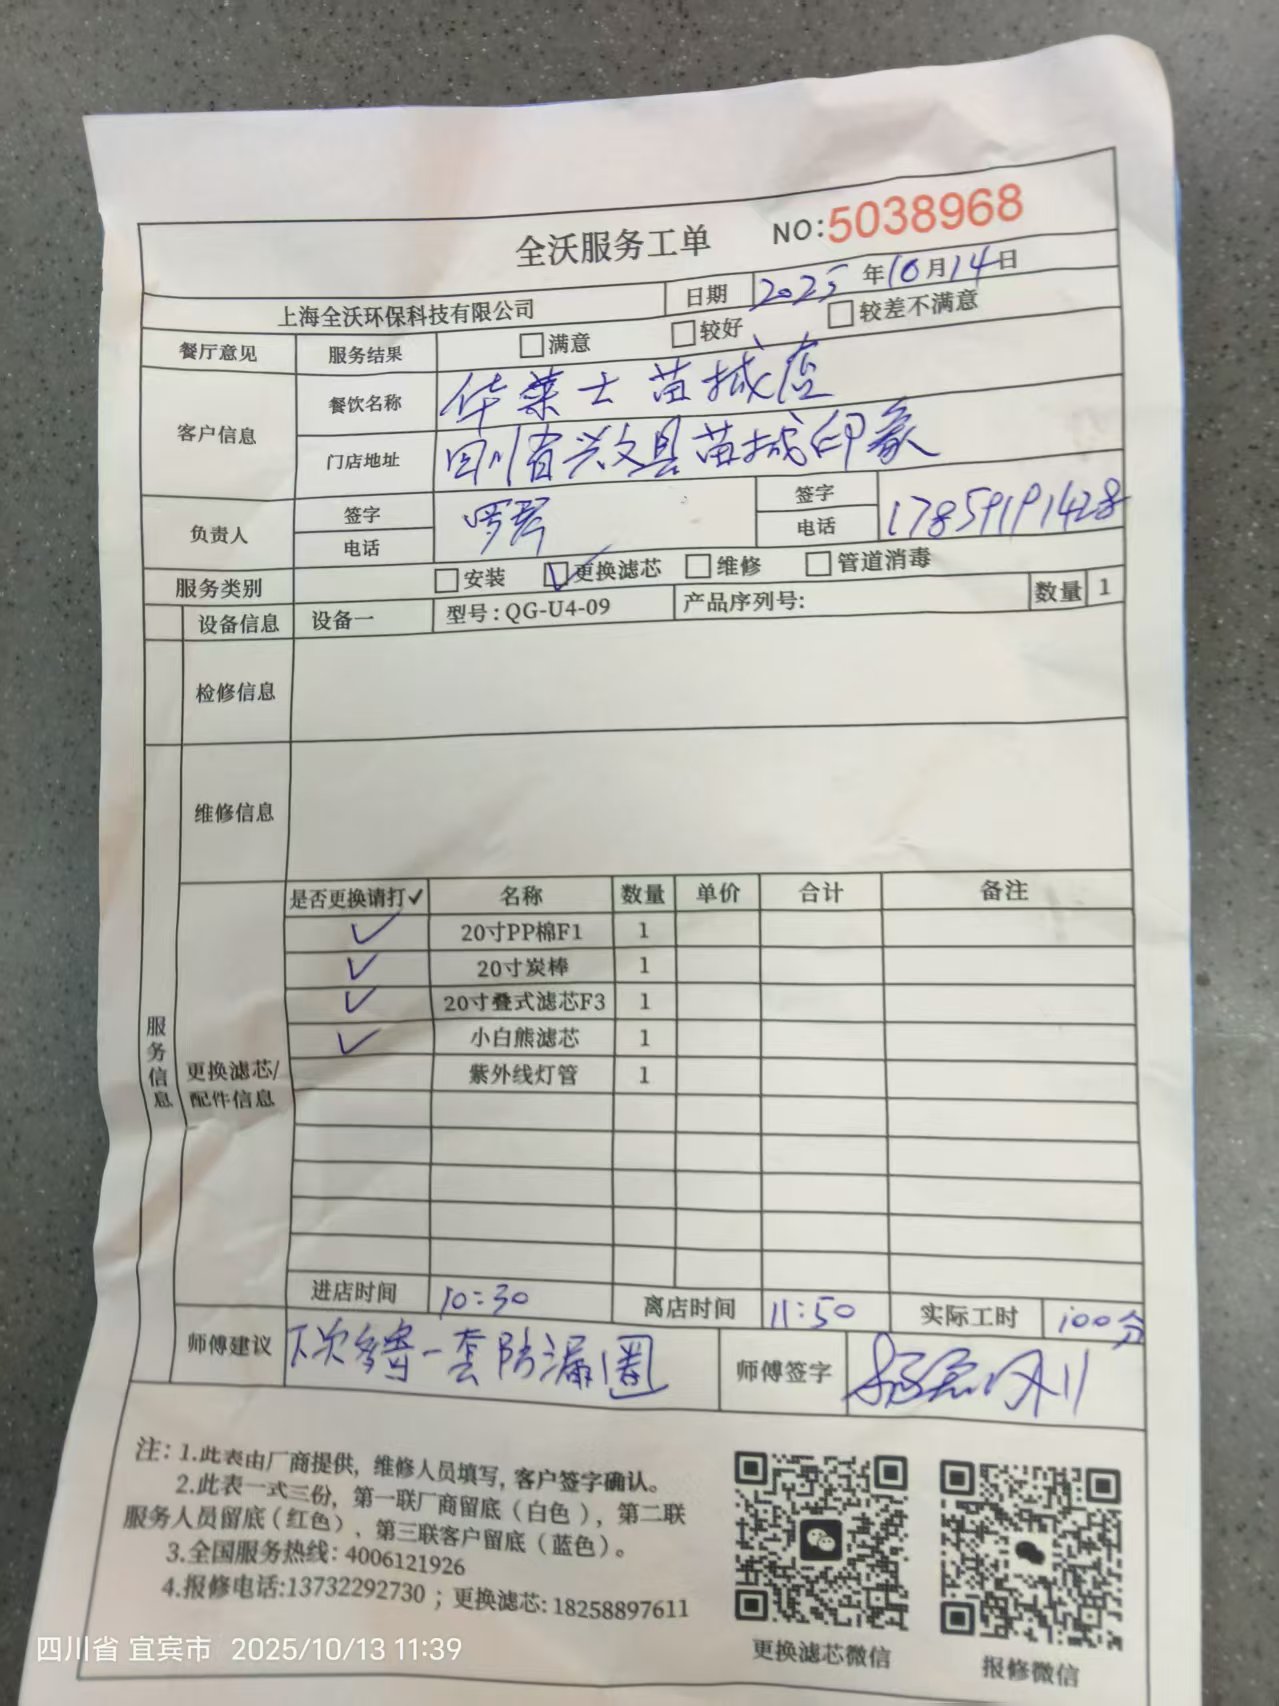 全沃服务工单 NO:5038968
上海全沃环保科技有限公司 日期 2025年10月14日
餐厅意见 服务结果 满意 较好 较差不满意
客户信息 餐饮名称 华莱士苗城店
门店地址 四川省兴文县苗城印象
负责人 签字 罗琴 签字
电话 电话 17859191428
服务类别 安装 更换滤芯 维修 管道消毒
设备信息 设备一 型号:QG-U4-09 产品序列号: 数量 1
检修信息
维修信息
服务信息
更换滤芯/配件信息
是否更换请打✓ 名称 数量 单价 合计 备注
✓ 20寸PP棉F1 1
✓ 20寸炭棒 1
✓ 20寸叠式滤芯F3 1
✓ 小白熊滤芯 1
紫外线灯管 1
进店时间 10:30 离店时间 11:50 实际工时 100分
师傅建议 下次多寄一套防漏圈 师傅签字
注:1.此表由厂商提供,维修人员填写,客户签字确认。
2.此表一式三份,第一联厂商留底(白色),第二联
服务人员留底(红色)、第三联客户留底(蓝色)。
3.全国服务热线:4006121926
4.报修电话:13732292730;更换滤芯:18258897611
更换滤芯微信 报修微信
四川省 宜宾市 2025/10/13 11:39